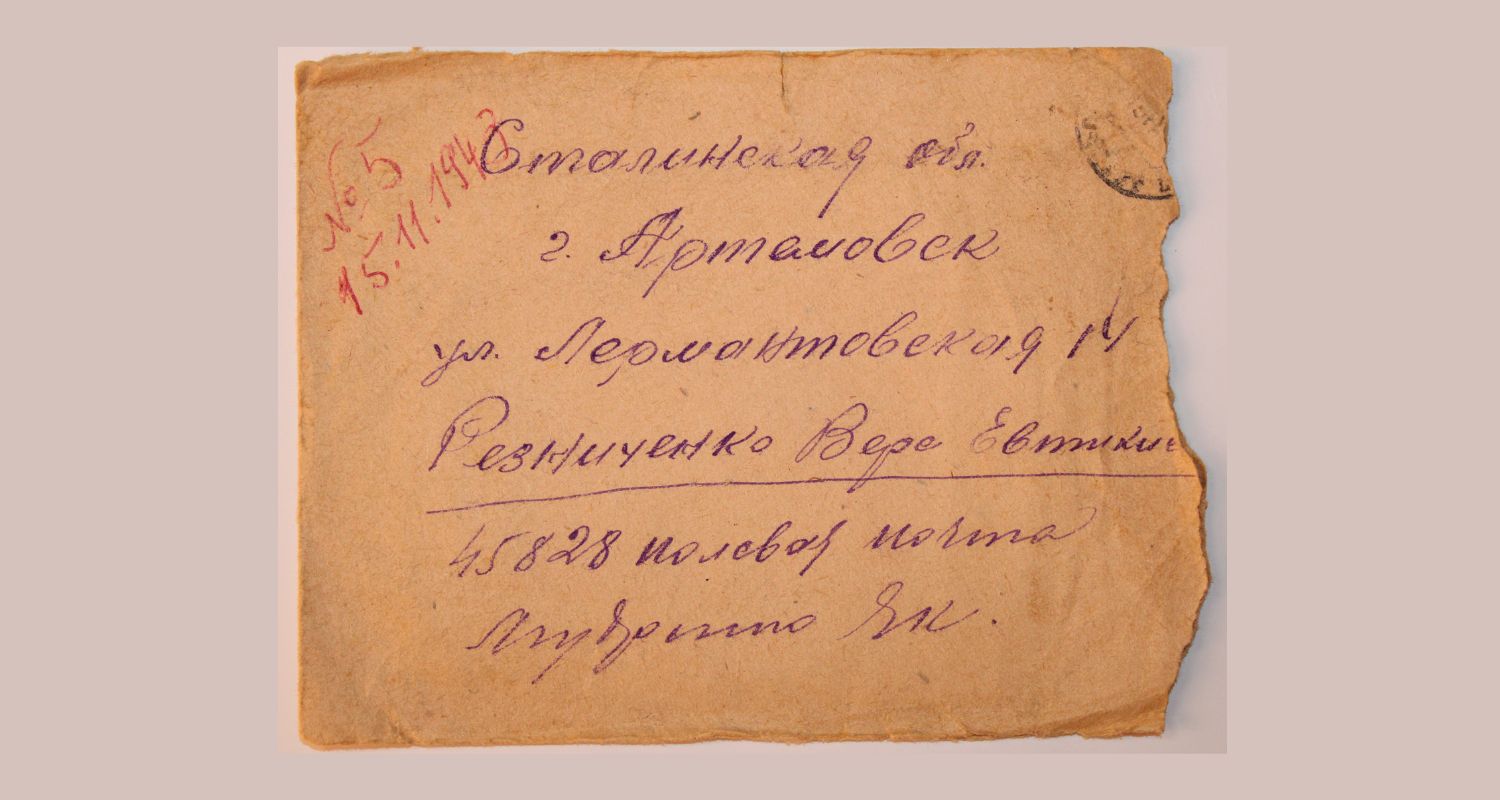 № 5
15.11.1943
Сталинская обл.
г. Артемовск
ул. Лермантовская 14
Резниченко Вере Евтихие
45828 полевая почта
Як.